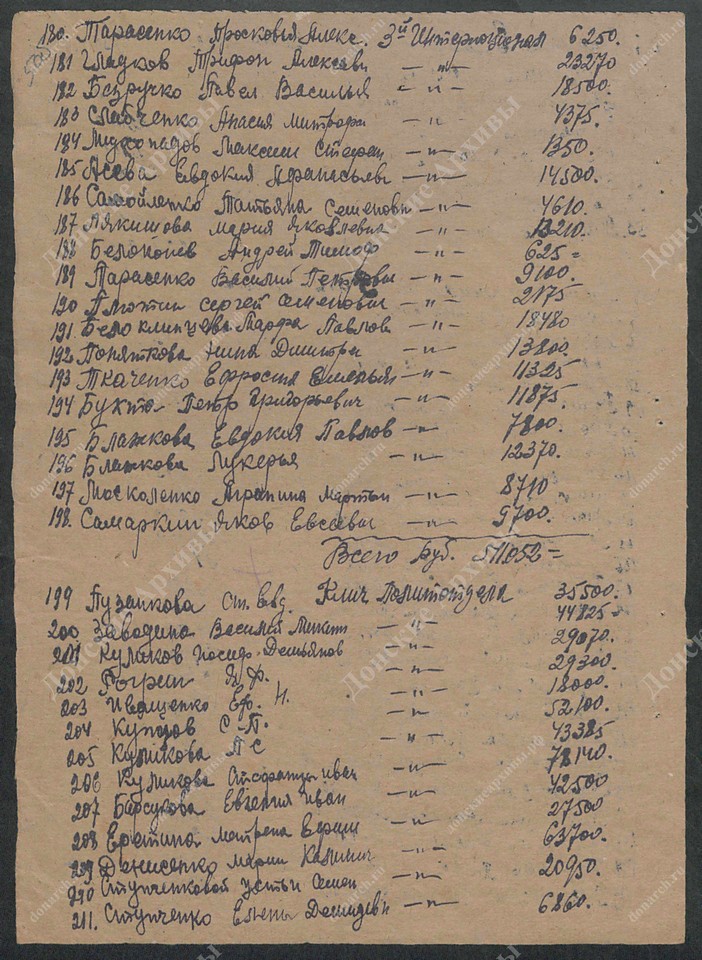 180. Тарасенко Просковья Алекс. 3й Интернационал 6250.
181 Гладков Трифон Алексеев —"— 23270
182 Безручко Павел Василья —"— 18500.
183 Слабченко Анасия Митрофа —"— 4375.
184 Мукопадов Максим Стефан —"— 1350.
185 Асева Евдокия Афанасьевн —"— 14500.
186 Самойленко Татьяна Семеновн —"— 4610.
187 Лякишова Мария Яковлевна —"— 13210.
188 Белоконев Андрей Тимоф —"— 625=
189 Тарасенко Василий Петрович —"— 9100.
190 Плютин Сергей Семенович —"— 2175
191. Белоклипцева Марфа Павлов —"— 18480
192. Поняткова Нина Дмитри —"— 13800.
193 Ткаченко Ефросия Емельян —"— 11325
194 Букта Петр Григорьевич —"— 11875.
195 Блажкова Евдокия Павлов —"— 7800.
196 Блажкова Лукерья —"— 12370.
197 Москаленко Аграпина Мартын —"— 8710
198. Самаркин Яков Евсеевич —"— 9700.
Всего руб. 511052=
199 Пузанкова Ст. Евд. Клич Политотдела 35500.
200 Заводина Василий Микит —"— 44825=
201 Куликов Иосиф Демьянов —"— 29070.
202 Я.Ф. —"— 29300
203 Иващенко Еф. Н. —"— 18000.
204 Купцов С.П. —"— 52100.
205 Куликова П С —"— 43385
206 Куликова Иван —"— 78140.
207 Барсукова Евгения Иван —"— 42500
208 Еретина Матрена —"— 27500
209 Денисенко Марии Калинич —"— 63700.
210 Ступченковой Устьи Семен —"— 20950.
211. Ступченко Елены Демидевн —"— 6860.
Донские архивы
donarch.ru
донскиеархивы.рф